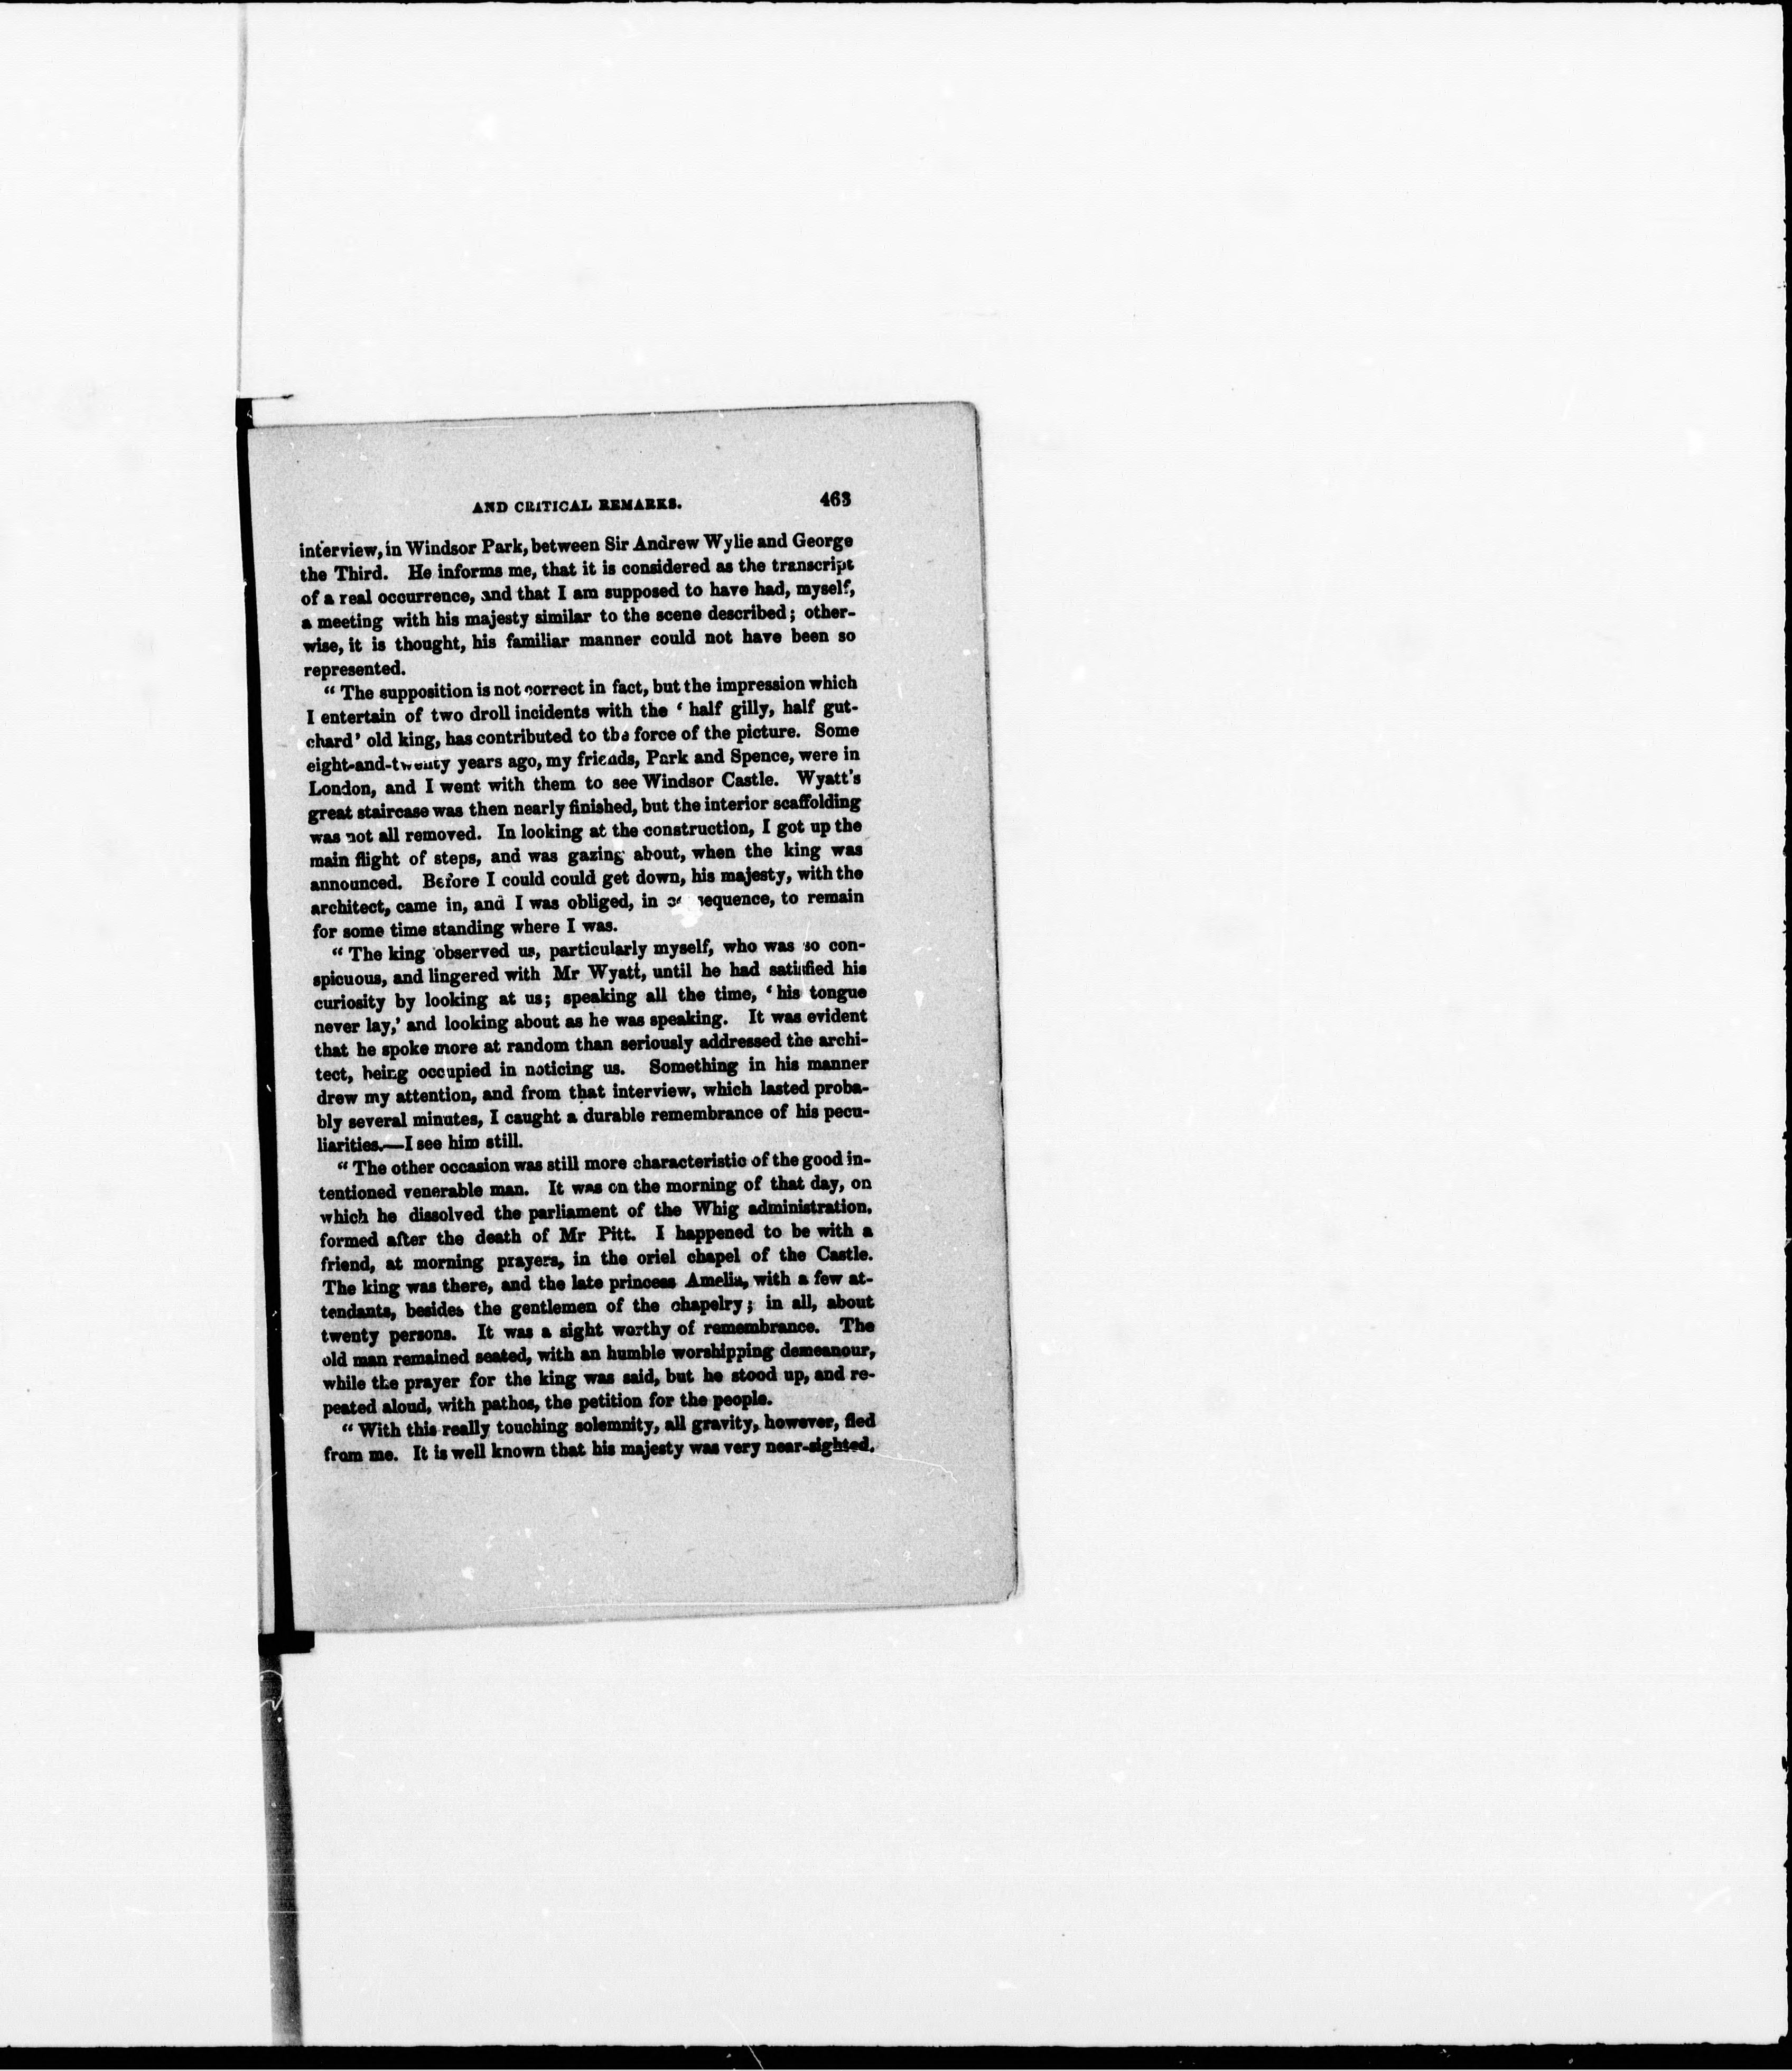 AND CRITICAL REMARKS. 463
interview, in Windsor Park, between Sir Andrew Wylie and George
the Third. He informs me, that it is considered as the transcript
of a real occurrence, and that I am supposed to have had, myself,
a meeting with his majesty similar to the scene described; other-
wise, it is thought, his familiar manner could not have been so
represented.
“ The supposition is not correct in fact, but the impression which
I entertain of two droll incidents with the ‘ half gilly, half gut-
chard’ old king, has contributed to the force of the picture. Some
eight-and-twenty years ago, my friends, Park and Spence, were in
London, and I went with them to see Windsor Castle. Wyatt’s
great staircase was then nearly finished, but the interior scaffolding
was not all removed. In looking at the construction, I got up the
main flight of steps, and was gazing about, when the king was
announced. Before I could could get down, his majesty, with the
architect, came in, and I was obliged, in consequence, to remain
for some time standing where I was.
“ The king observed us, particularly myself, who was so con-
spicuous, and lingered with Mr Wyatt, until he had satisfied his
curiosity by looking at us; speaking all the time, ‘ his tongue
never lay,’ and looking about as he was speaking. It was evident
that he spoke more at random than seriously addressed the archi-
tect, being occupied in noticing us. Something in his manner
drew my attention, and from that interview, which lasted proba-
bly several minutes, I caught a durable remembrance of his pecu-
liarities.—I see him still.
“ The other occasion was still more characteristic of the good in-
tentioned venerable man. It was on the morning of that day, on
which he dissolved the parliament of the Whig administration,
formed after the death of Mr Pitt. I happened to be with a
friend, at morning prayers, in the oriel chapel of the Castle.
The king was there, and the late princess Amelia, with a few at-
tendants, besides the gentlemen of the chapelry; in all, about
twenty persons. It was a sight worthy of remembrance. The
old man remained seated, with an humble worshipping demeanour,
while the prayer for the king was said, but he stood up, and re-
peated aloud, with pathos, the petition for the people.
“ With this really touching solemnity, all gravity, however, fled
from me. It is well known that his majesty was very near-sighted.